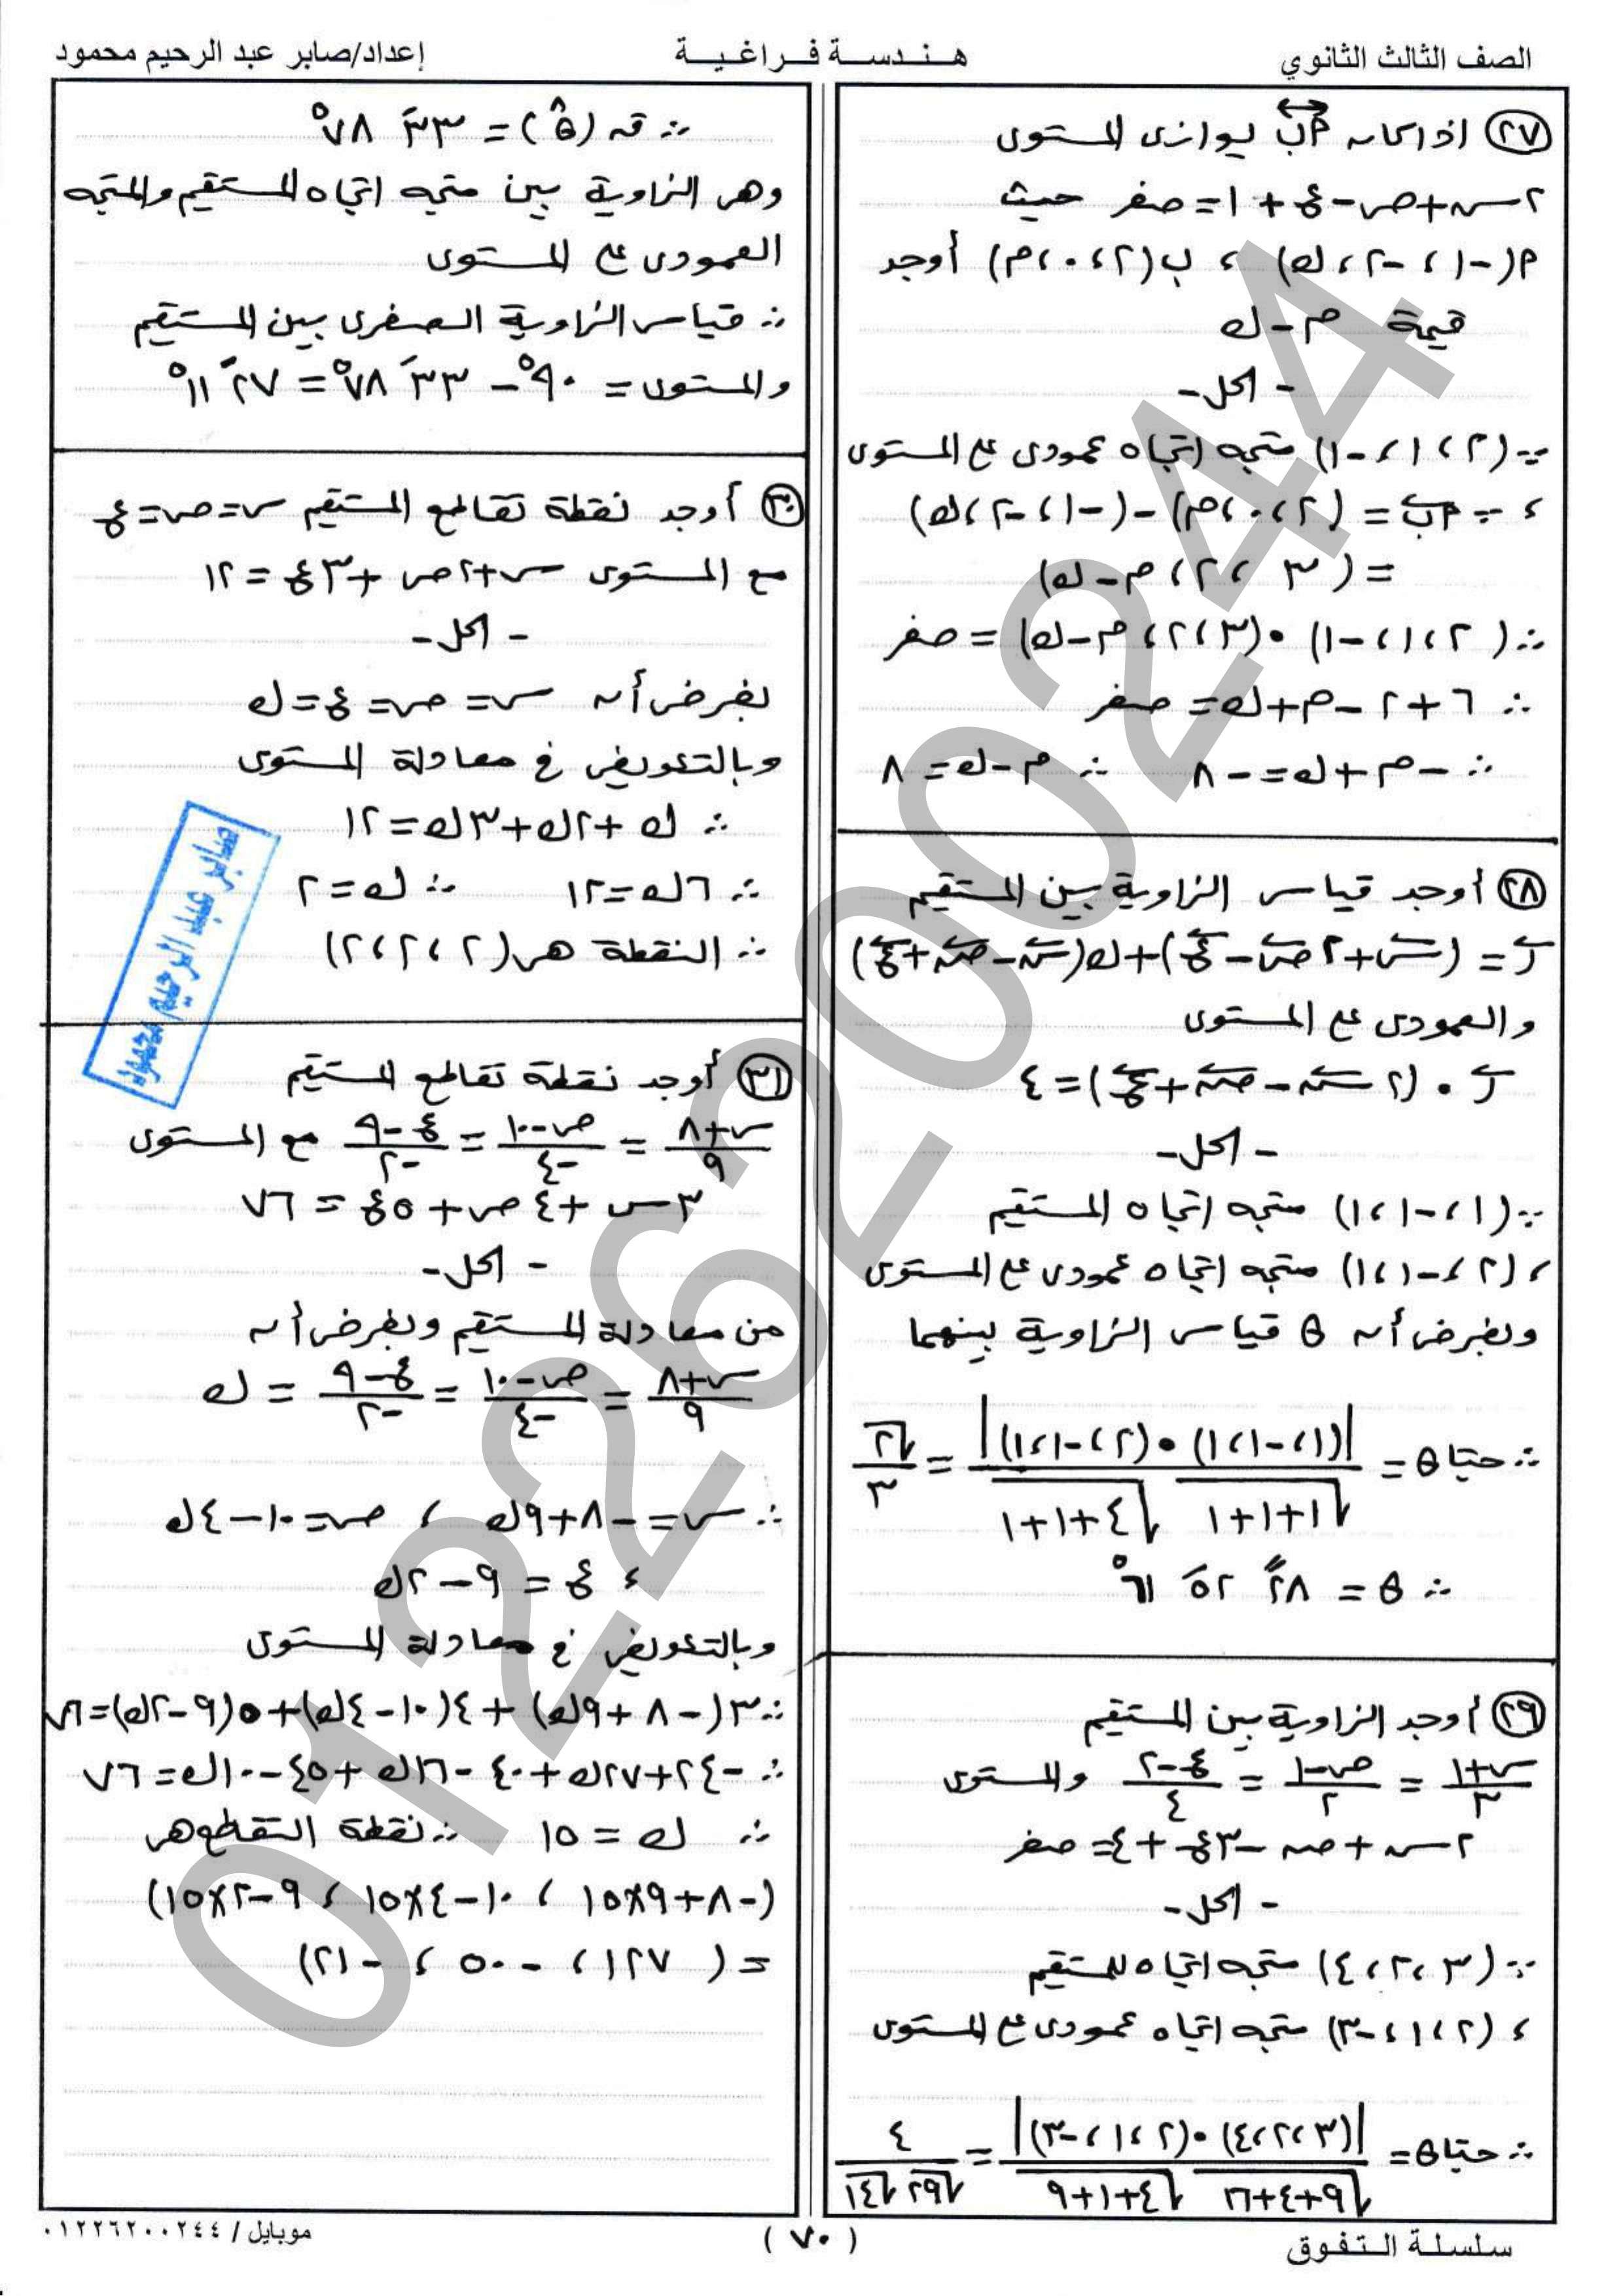 الصف الثالث الثانوي
هـنـدسـة فـراغـيـة
إعداد/صابر عبد الرحيم محمود
(٢٧) اذا كان أب يوازى المستوى
٢س+ص-ع+١=صفر حيث
أ(-١، -٢، ك) ، ب(٢، ٠، م) أوجد
قيمة م-ك
- الحل -
∵ (٢، ١، -١) متجه اتجاه عمودى على المستوى
، ∵ أب = (٢، ٠، م)-(-١، -٢، ك)
= (٣، ٢، م-ك)
∴ (٢، ١، -١) • (٣، ٢، م-ك) = صفر
∴ ٦+٢-م+ك= صفر
∴ -م+ك=-٨ ∴ م-ك=٨
(٢٨) أوجد قياس الزاوية بين المستقيم
ر = (س+٢ص-ع)+ك(س-ص+ع)
والعمودى على المستوى
ر • (٢س-ص+ع)=٤
- الحل -
∵ (١، -١، ١) متجه اتجاه المستقيم
، (٢، -١، ١) متجه اتجاه عمودى على المستوى
وبفرض أن θ قياس الزاوية بينهما
∴ حتاθ = |(١، -١، ١)•(٢، -١، ١)| / √(١+١+١) √(٤+١+١) = √٢ / ٣
∴ θ = ٢٨ً ٥٢َ ٦١°
(٢٩) أوجد الزاوية بين المستقيم
(س+١)/٣ = (ص-١)/٢ = (ع-٢)/٤ والمستوى
٢س+ص-٣ع+٤= صفر
- الحل -
∵ (٣، ٢، ٤) متجه اتجاه للمستقيم
، (٢، ١، -٣) متجه اتجاه عمودى على المستوى
∴ حتاθ= |(٣، ٢، ٤)•(٢، ١، -٣)| / √(٩+٤+١٦) √(٤+١+٩) = ٤ / √٢٩ √١٤
∴ قه (θ) = ٣٣َ ٧٨°
وهى الزاوية بين متجه اتجاه المستقيم والمتجه
العمودى على المستوى
∴ قياس الزاوية الصغرى بين المستقيم
والمستوى = ٩٠° - ٣٣َ ٧٨° = ٢٧َ ١١°
(٣٠) أوجد نقطة تقاطع المستقيم س=ص=ع
مع المستوى س+٢ص+٣ع=١٢
- الحل -
بفرض أن س=ص=ع=ك
وبالتعويض فى معادلة المستوى
∴ ك+٢ك+٣ك=١٢
∴ ٦ك=١٢ ∴ ك=٢
∴ النقطة هى (٢، ٢، ٢)
صابر عبد الرحيم محمود
(٣١) أوجد نقطة تقاطع المستقيم
(س+٨)/٩ = (ص-١٠)/-٤ = (ع-٩)/-٢ مع المستوى
٣س+٤ص+٥ع = ٧٦
- الحل -
من معادلة المستقيم وبفرض أن
(س+٨)/٩ = (ص-١٠)/-٤ = (ع-٩)/-٢ = ك
∴ س=-٨+٩ك ، ص=١٠-٤ك
، ع = ٩-٢ك
وبالتعويض فى معادلة المستوى
∴ ٣(-٨+٩ك)+٤(١٠-٤ك)+٥(٩-٢ك)=٧٦
∴ -٢٤+٢٧ك+٤٠-١٦ك+٤٥-١٠ك=٧٦
∴ ك = ١٥ ∴ نقطة التقطع هى
(-٨+٩×١٥ ، ١٠-٤×١٥ ، ٩-٢×١٥)
= (١٢٧، -٥٠، -٢١)
01226200244
سلسلة الـتفوق
(٧٠)
موبايل / ٠١٢٢٦٢٠٠٢٤٤